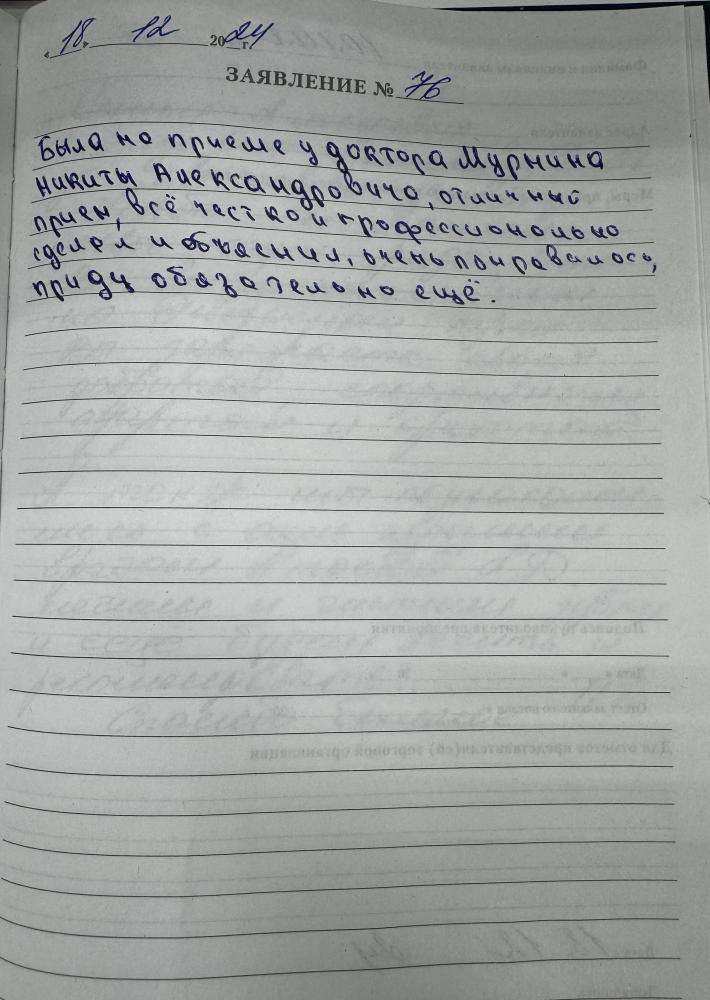 « 18 » 12 2024 г.
ЗАЯВЛЕНИЕ № 76
Была на приеме у доктора Мурнина
Никиты Александровича, отличный
прием, всё честно и профессионально
сделал и объяснил, очень понравилось,
приду обязательно ещё.